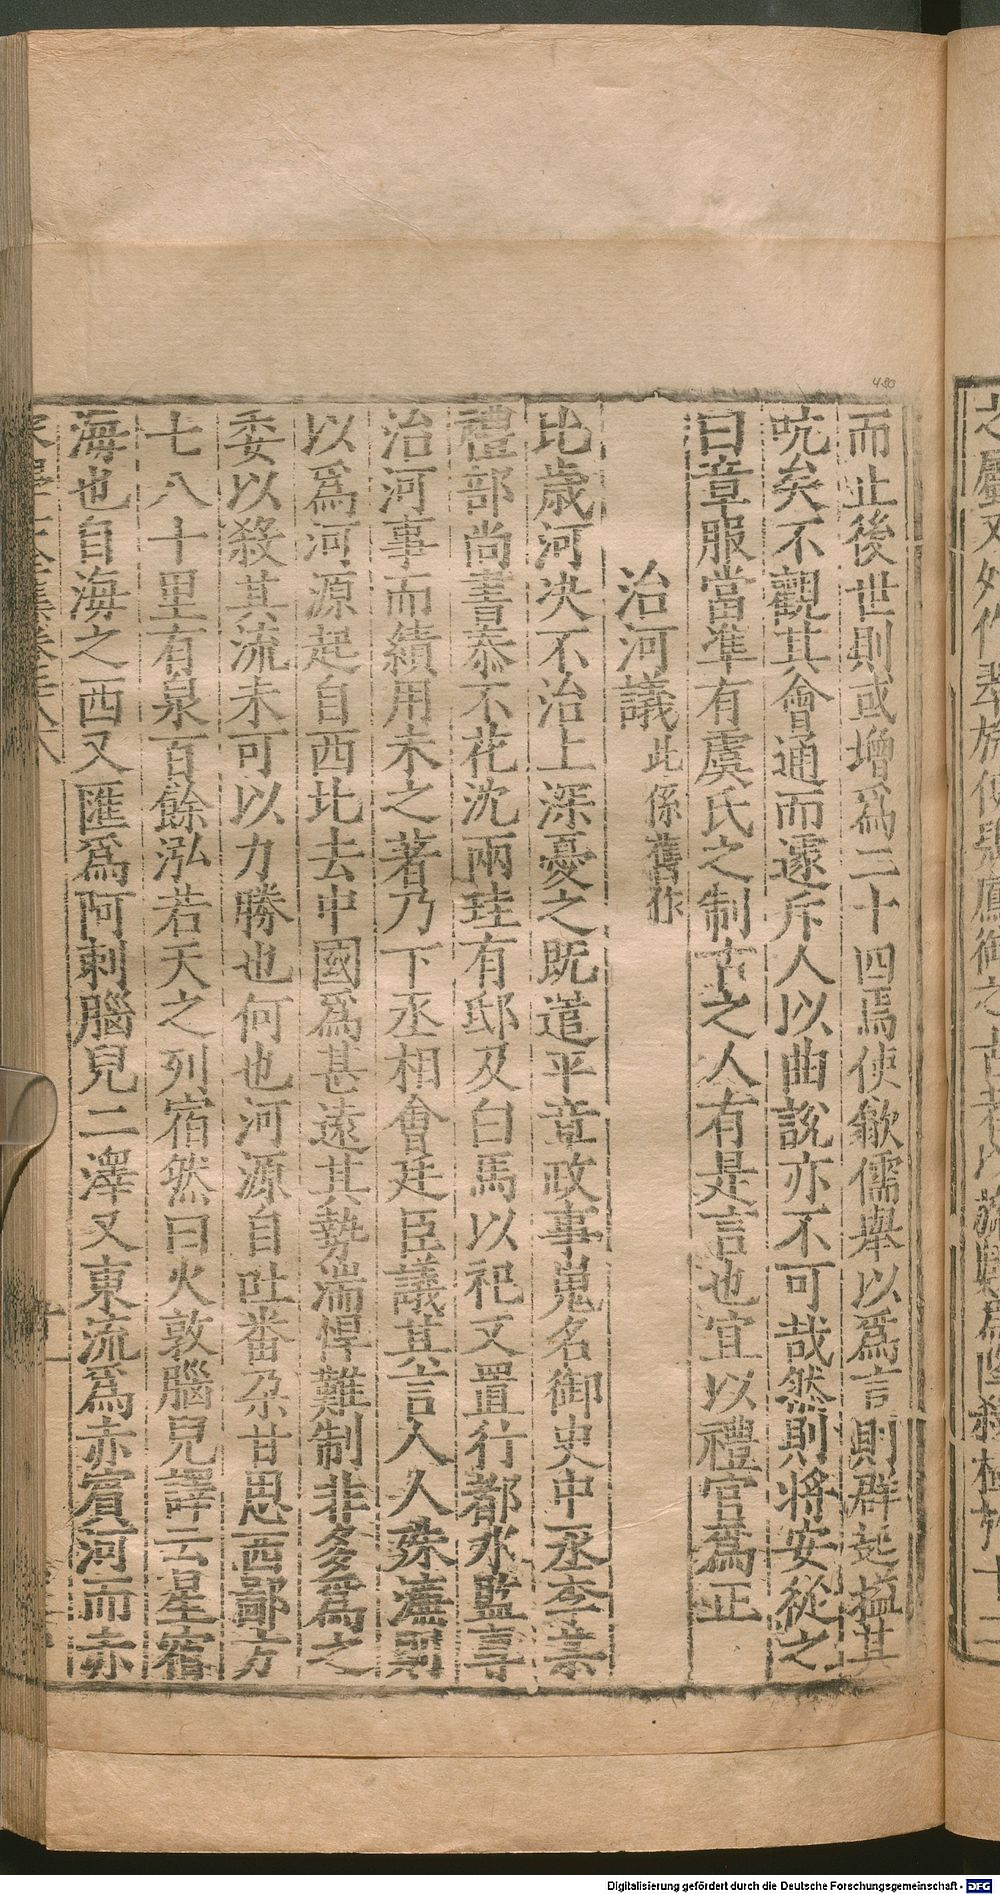 480
而止後世則或增爲二十四焉使歙儒舉以爲言則群起搤其
吭矣不觀其會通而遽斥人以曲說亦不可哉然則將安從之
曰章服當準有虞氏之制古之人有是言也宜以禮官爲正
治河議此係舊作
比歲河决不治上深憂之既遣平章政事嵬名御史中丞李某
禮部尚書泰不花沈兩珪有邸及白馬以祀又置行都水監専
治河事而績用未之著乃下丞相會廷臣議其言人人殊濂則
以爲河源起自西北去中國爲甚遠其勢湍悍難制非多爲之
委以殺其流未可以力勝也何也河源自吐番朶甘思西鄙方
七八十里有泉百餘泓若天之列宿然曰火敦腦兒譯云星宿
海也自海之西又匯爲阿剌腦兒二澤又東流爲赤賓河而赤
Digitalisierung gefördert durch die Deutsche Forschungsgemeinschaft - DFG